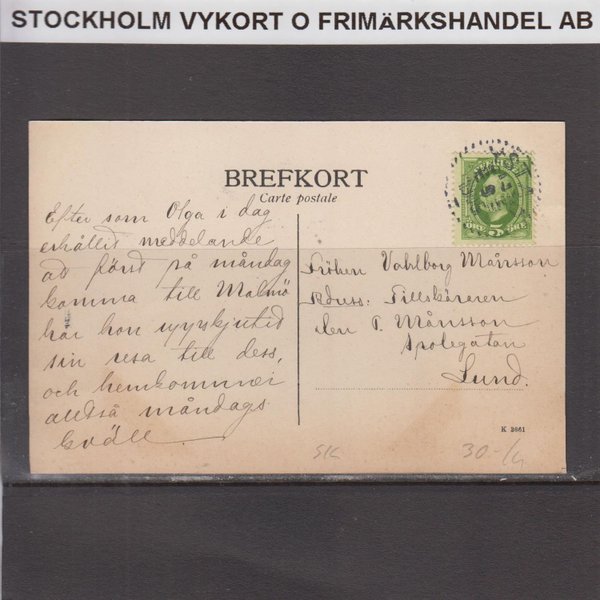 STOCKHOLM VYKORT O FRIMÄRKSHANDEL AB
BREFKORT
Carte postale
Efter som Olga i dag
erhållit meddelande
att först på måndag
komma till Malmö
har hon uppskjutid
sin resa till dess,
och hemkommer
alltså måndags
kväll.
ÖRE 5 ÖRE
Fröken Valborg Månsson
Adress: Tillskäraren
P. Månsson
Spolegatan
Lund.
K 2861
SK
30-/4